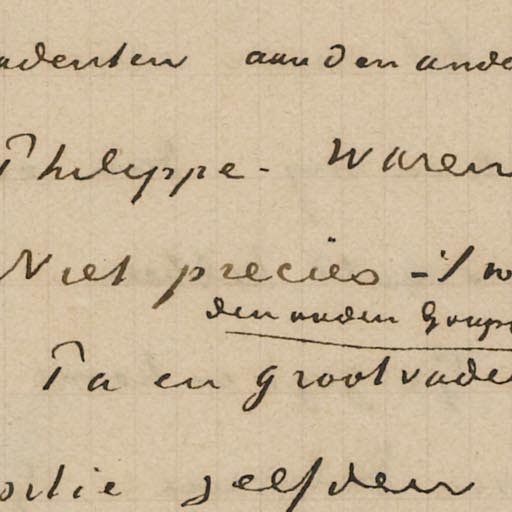 udenten aan den ande
Philippe. Waren
Niet precies - 't w
den ouden Goupi
Pa en grootvade
ositie selfden